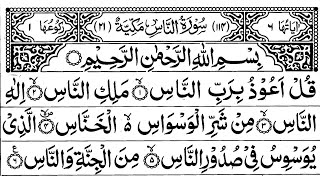 اٰيَاتُهَا ٦ (١١٤) سُوْرَةُ النَّاسِ مَكِّيَّةٌ (٢١) رُكُوْعُهَا ١
بِسْمِ اللّٰهِ الرَّحْمٰنِ الرَّحِيْمِ
قُلْ اَعُوْذُ بِرَبِّ النَّاسِ ۙ﴿١﴾ مَلِكِ النَّاسِ ۙ﴿٢﴾ اِلٰهِ
النَّاسِ ۙ﴿٣﴾ مِنْ شَرِّ الْوَسْوَاسِ ۵ۙ الْخَنَّاسِ ۙ﴿٤﴾ الَّذِيْ
يُوَسْوِسُ فِيْ صُدُوْرِ النَّاسِ ۙ﴿٥﴾ مِنَ الْجِنَّةِ وَالنَّاسِ ﴿٦﴾